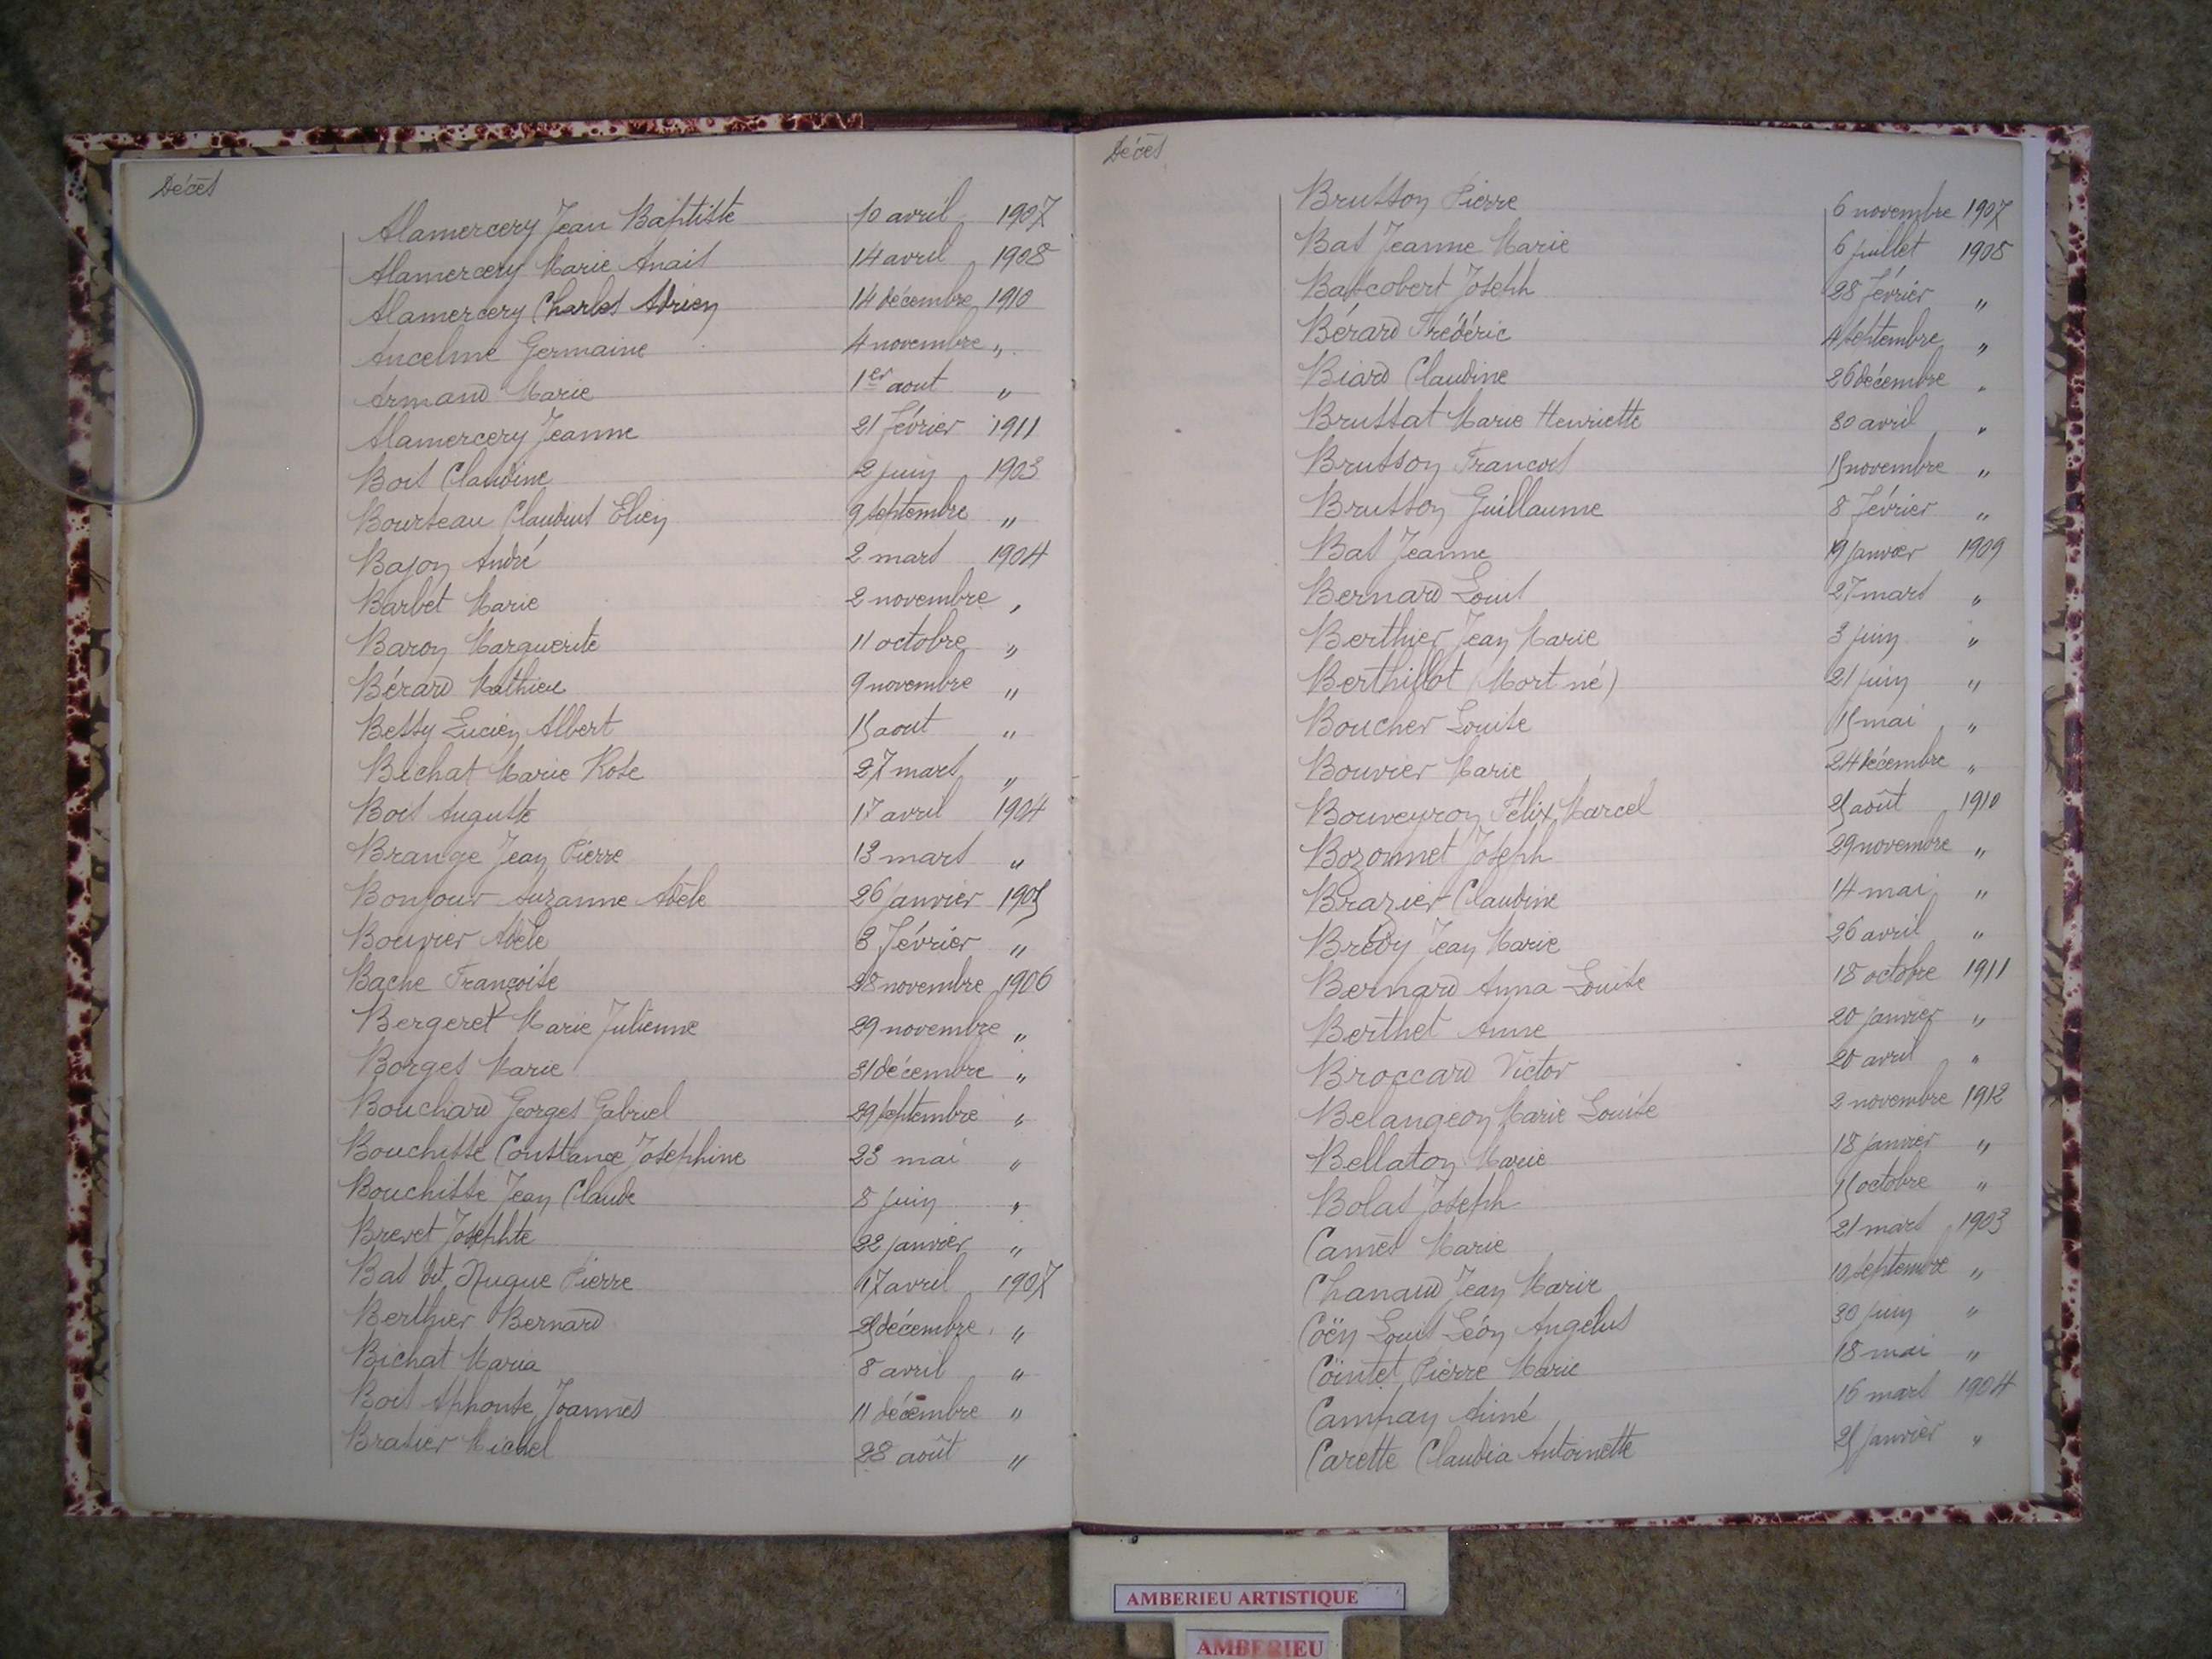 Décès
Alamercery Jean Baptiste 10 avril 1907
Alamercery Marie Anais 14 avril 1908
Alamercery Charles Adrien 14 décembre 1910
Ancelme Germaine 4 novembre "
Armand Marie 1er aout "
Alamercery Jeanne 21 Février 1911
Bois Claudine 2 juin 1903
Bourseau Claudius Elien 9 septembre "
Bajon André 2 mars 1904
Barbet Marie 2 novembre "
Baron Marguerite 11 octobre "
Bérard Mathieu 9 novembre "
Bessy Lucien Albert 15 aout "
Bichat Marie Rose 27 mars "
Bois Auguste 17 avril 1904
Brange Jean Pierre 13 mars "
Bonjour Suzanne Adèle 26 janvier 1905
Bouvier Adèle 3 Février "
Bache Françoise 28 novembre 1906
Bergeret Marie Julienne 29 novembre "
Borges Marie 31 décembre "
Bouchard Georges Gabriel 29 septembre "
Bouchisse Constance Joséphine 23 mai "
Bouchisse Jean Claude 8 juin "
Brevet Josephte 22 janvier "
Bas dit Nugue Pierre 17 avril 1907
Berthier Bernard 25 décembre "
Bichat Maria 8 avril "
Bois Alphonse Joannès 11 décembre "
Brasier Michel 28 août "
Décès
Brusson Pierre 6 novembre 1907
Bas Jeanne Marie 6 juillet 1908
Bascobert Joseph 28 Février "
Bérard Frédéric 4 septembre "
Biard Claudine 26 décembre "
Brussat Marie Henriette 30 avril "
Brusson Francois 15 novembre "
Brusson Guillaume 8 Février "
Bas Jeanne 19 janvier 1909
Bernard Louis 27 mars "
Berthier Jean Marie 3 juin "
Berthillot (Mort né) 21 juin "
Boucher Louise 15 mai "
Bouvier Marie 24 décembre "
Bouveyron Félix Marcel 25 août 1910
Bozonnet Joseph 29 novembre "
Brazier Claudine 14 mai "
Brédy Jean Marie 26 avril "
Bernard Anna Louise 18 octobre 1911
Berthet Anne 20 janvier "
Broccard Victor 20 avril "
Belangeon Marie Louise 2 novembre 1912
Bellaton Marie 18 janvier "
Bolas Joseph 15 octobre "
Camès Marie 21 mars 1903
Chanaud Jean Marie 10 septembre "
Coën Louis Léon Angélus 30 juin "
Cointet Pierre Marie 18 mai "
Campay Aimé 16 mars 1904
Carette Claudia Antoinette 25 janvier "
AMBERIEU ARTISTIQUE
AMBERIEU